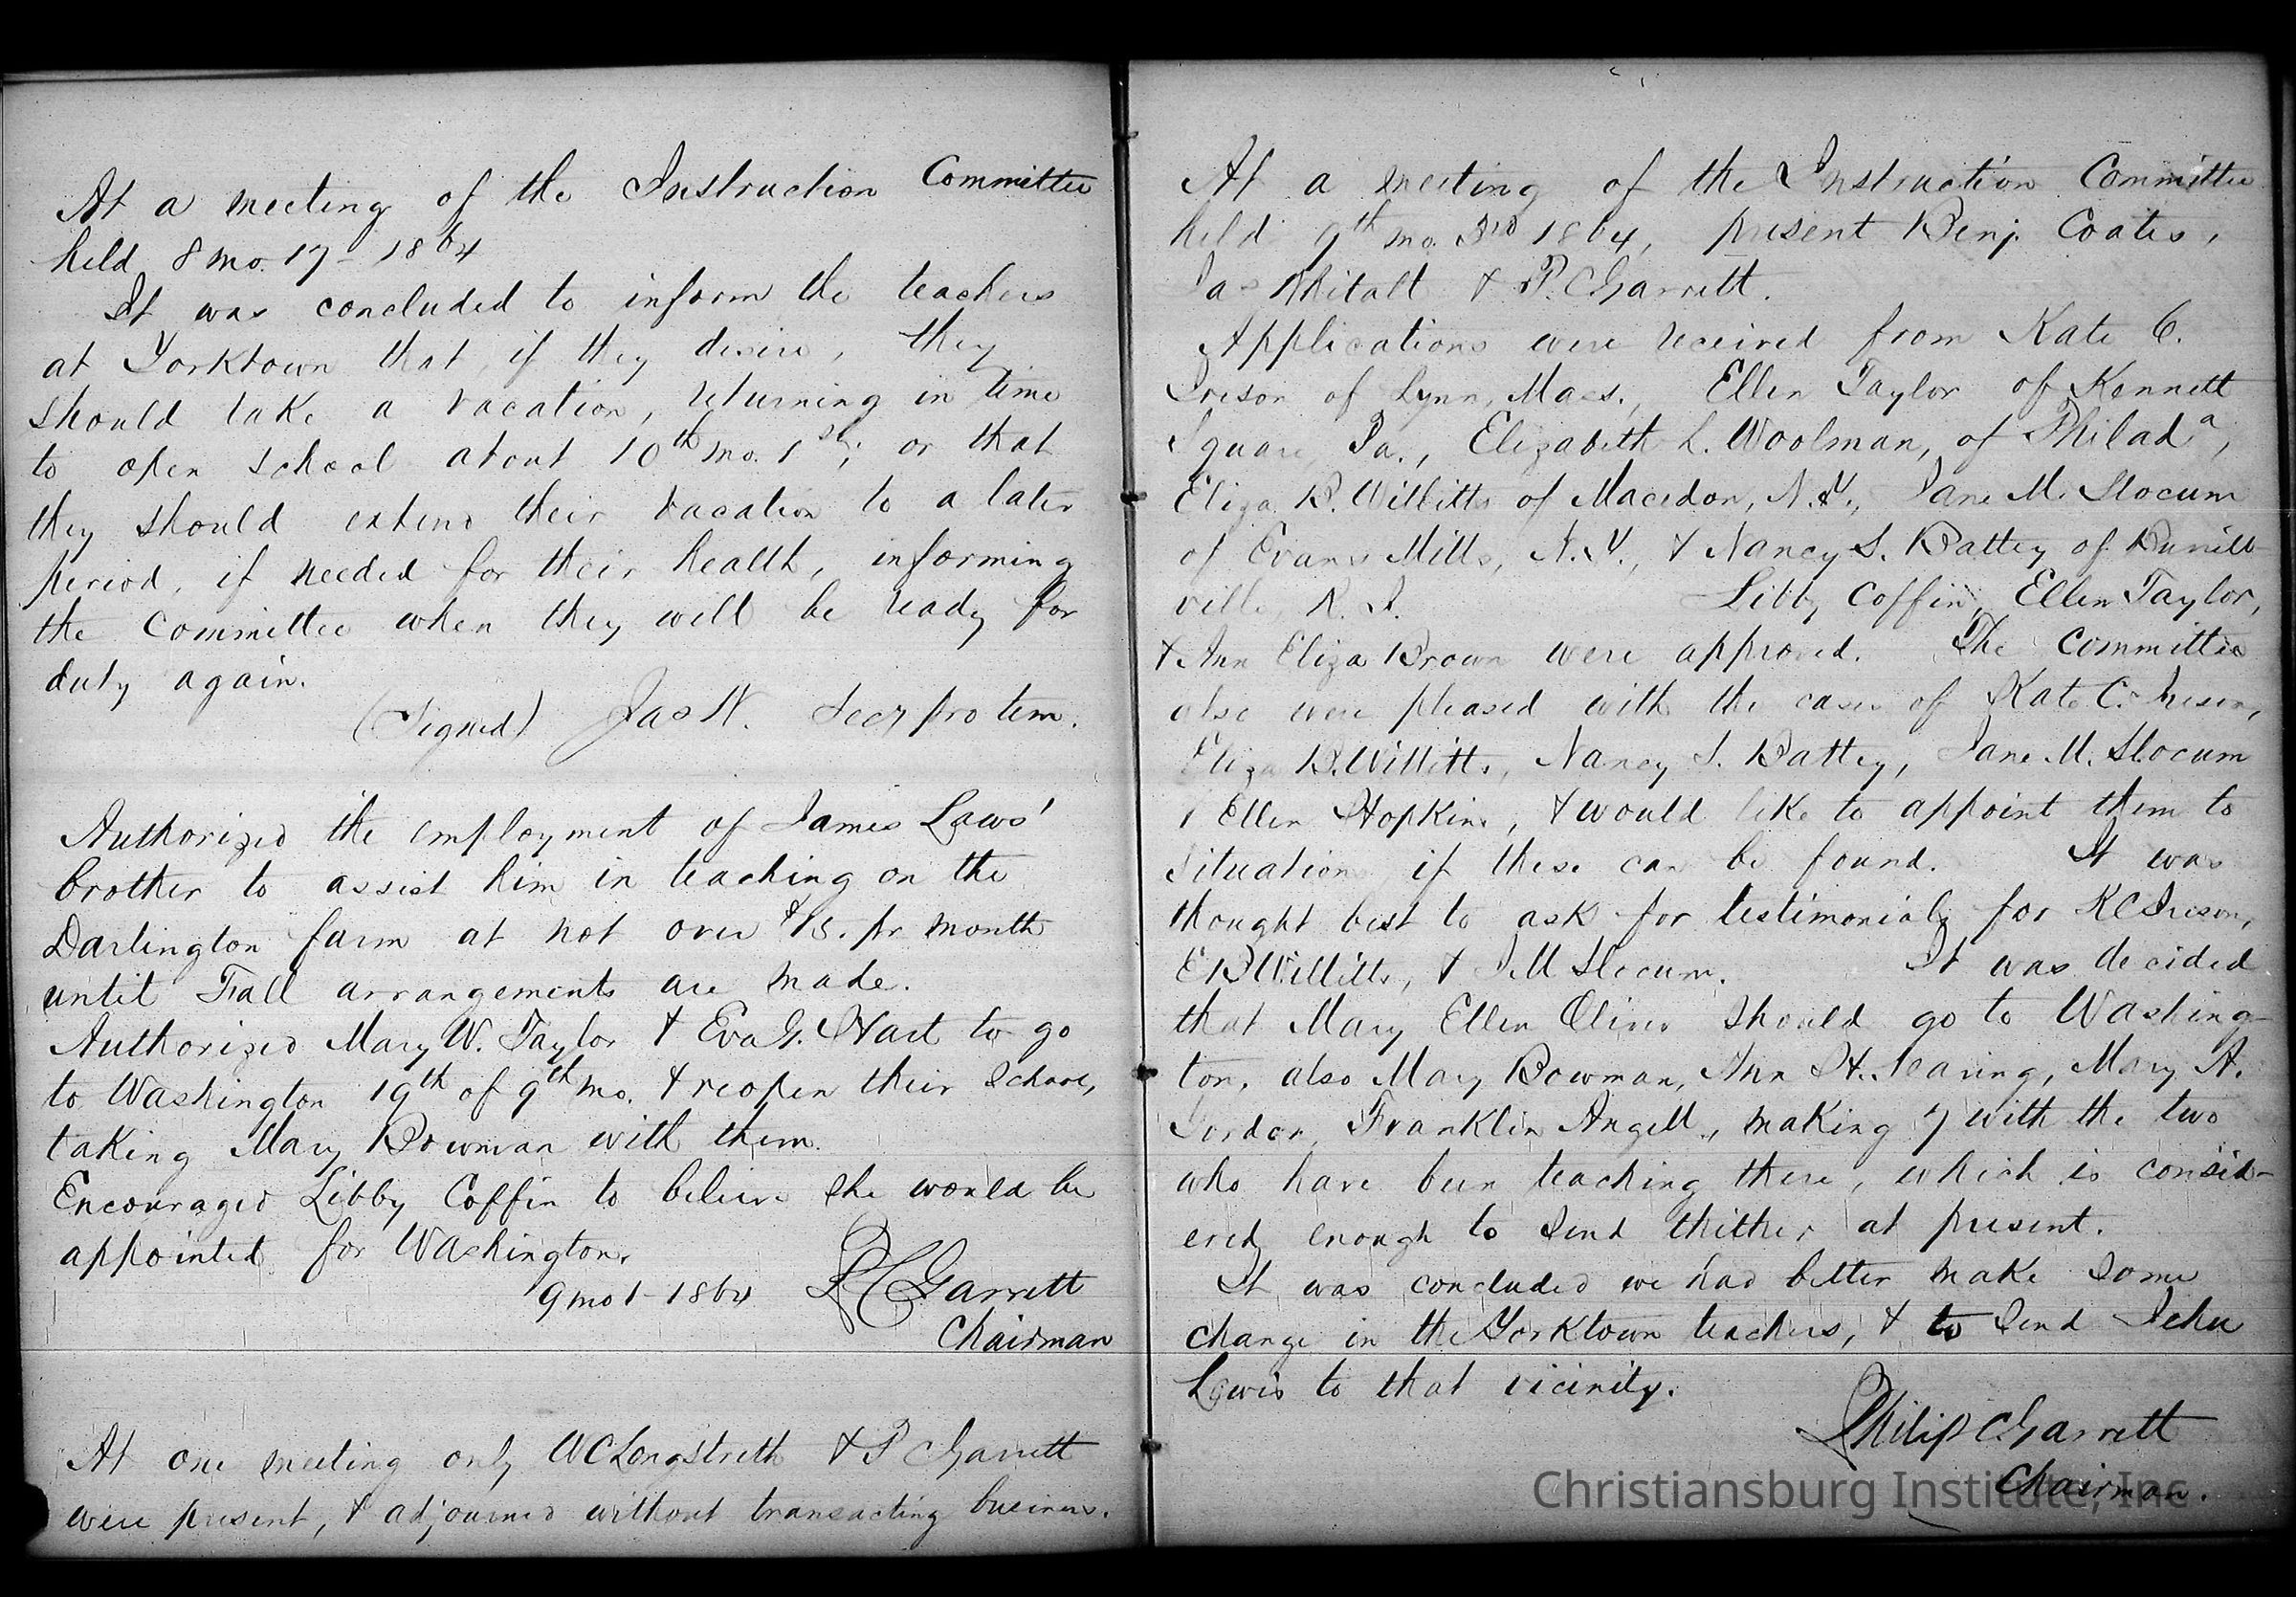 At a meeting of the Instruction Committee
held 8 mo. 17 - 1864
It was concluded to inform the teachers
at Yorktown that, if they desire, they
should take a vacation, returning in time
to open school about 10th mo. 1st; or that
they should extend their vacation to a later
period, if needed for their health, informing
the Committee when they will be ready for
duty again.
(Signed) Jas W. Secy pro tem.
Authorized the employment of James Laws'
brother to assist him in teaching on the
Darlington farm at not over $15. pr month
until Fall arrangements are made.
Authorized Mary W. Taylor & Eva G. Hart to go
to Washington 19th of 9th mo. & reopen their School,
taking Mary Bowman with them.
Encouraged Libby Coffin to believe she would be
appointed for Washington.
9 mo 1 - 1864 P C Garrett
Chairman
At one meeting only W C Longstreth & P C Garrett
were present, & adjourned without transacting business.
At a meeting of the Instruction Committee
held 9th mo. 3rd 1864, present Benj. Coates,
Jas Whitall & P. C Garrett.
Applications were received from Kate C.
Ireson of Lynn, Mass., Ellen Taylor of Kennett
Square, Pa., Elizabeth L. Woolman, of Philada,
Eliza B. Willitts of Macedon, N.Y., Jane M. Slocum
of Evans Mills, N.Y., & Nancy S. Battey of Burrill-
ville, R. I. Libby Coffin, Ellen Taylor,
& Ann Eliza Brown were approved. The Committee
also were pleased with the cases of Kate C. Ireson,
Eliza B. Willitts, Nancy S. Battey, Jane M. Slocum
& Ellen Hopkins, & would like to appoint them to
situations if these can be found. It was
thought best to ask for testimonials for K C Ireson,
E B Willitts, & J M Slocum. It was decided
that Mary Ellen Oliver should go to Washing-
ton, also Mary Bowman, Ann H. Searing, Mary A.
Gordon, Franklin Angell, making 7 with the two
who have been teaching there, which is consid-
ered enough to send thither at present.
It was concluded we had better make some
change in the Yorktown teachers, & to send John
Lewis to that vicinity.
Philip C Garrett
Chairman.
Christiansburg Institute, Inc